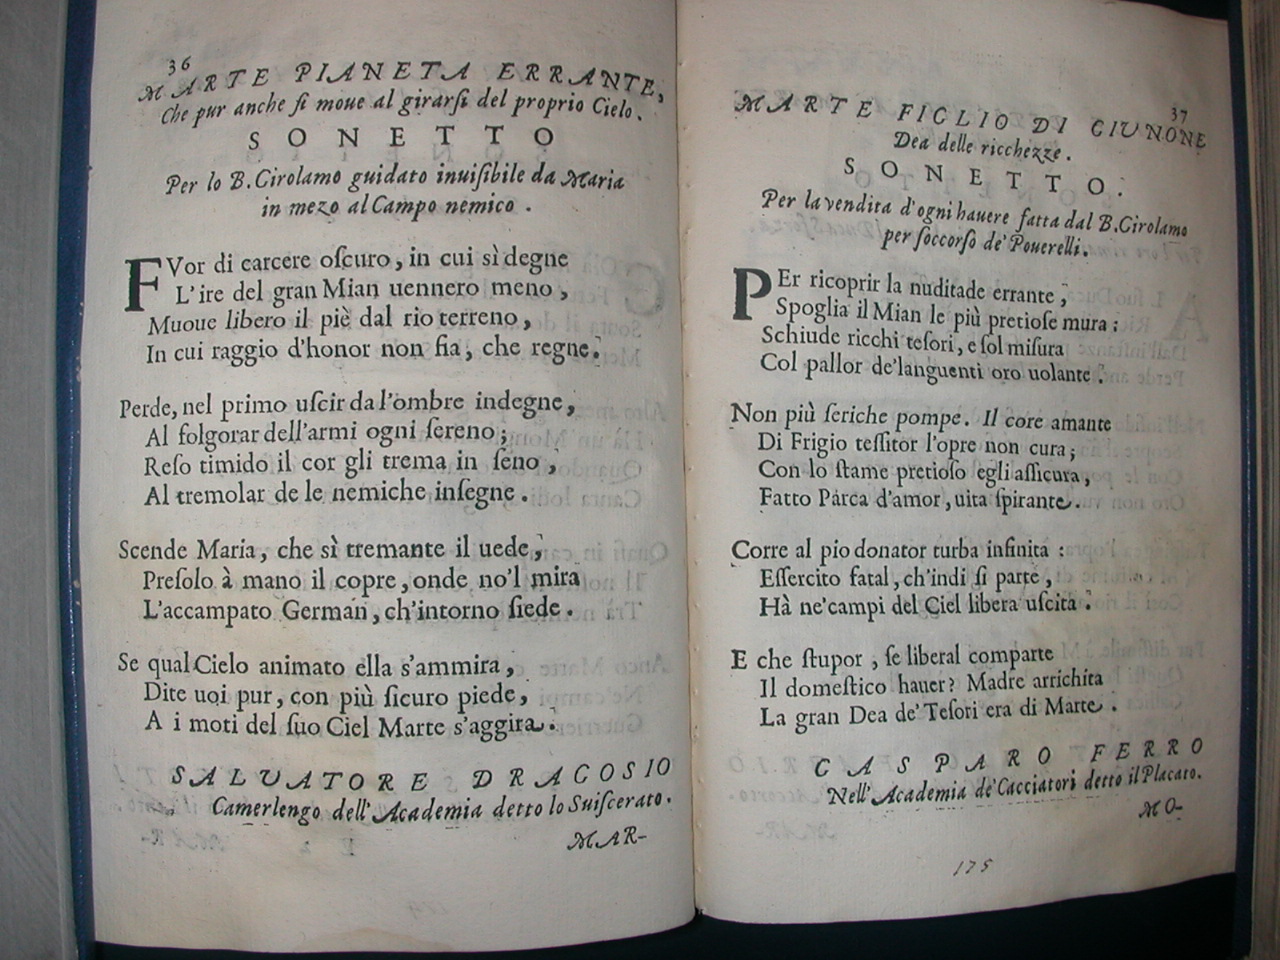 36
MARTE PIANETA ERRANTE,
Che pur anche ſi moue al girarſi del proprio Cielo.
SONETTO
Per lo B. Girolamo guidato inuiſibile da Maria
in mezo al Campo nemico.
FVor di carcere oſcuro, in cui sì degne
L'ire del gran Mian uennero meno,
Muoue libero il piè dal rio terreno,
In cui raggio d'honor non fia, che regne.
Perde, nel primo uſcir dal'ombre indegne,
Al folgorar dell'armi ogni ſereno;
Reſo timido il cor gli trema in ſeno,
Al tremolar de le nemiche inſegne.
Scende Maria, che sì tremante il uede,
Preſolo à mano il copre, onde no'l mira
L'accampato German, ch'intorno ſiede.
Se qual Cielo animato ella s'ammira,
Dite uoi pur, con più ſicuro piede,
A i moti del ſuo Ciel Marte s'aggira.
SALVATORE DRAGOSIO
Camerlengo dell'Academia detto lo Suiſcerato.
MAR-
37
MARTE FIGLIO DI GIUNONE
Dea delle ricchezze.
SONETTO.
Per la vendita d'ogni hauere fatta dal B. Girolamo
per ſoccorſo de' Pouerelli.
PEr ricoprir la nuditade errante,
Spoglia il Mian le più pretioſe mura;
Schiude ricchi teſori, e ſol miſura
Col pallor de'languenti oro uolante.
Non più ſeriche pompe. Il core amante
Di Frigio teſſitor l'opre non cura;
Con lo ſtame pretioſo egli aſſicura,
Fatto Parca d'amor, uita ſpirante.
Corre al pio donator turba infinita:
Eſſercito fatal, ch'indi ſi parte,
Hà ne'campi del Ciel libera uſcita.
E che ſtupor, ſe liberal comparte
Il domeſtico hauer? Madre arrichita
La gran Dea de' Teſori era di Marte.
GASPARO FERRO
Nell'Academia de'Cacciatori detto il Placato.
MO-
175